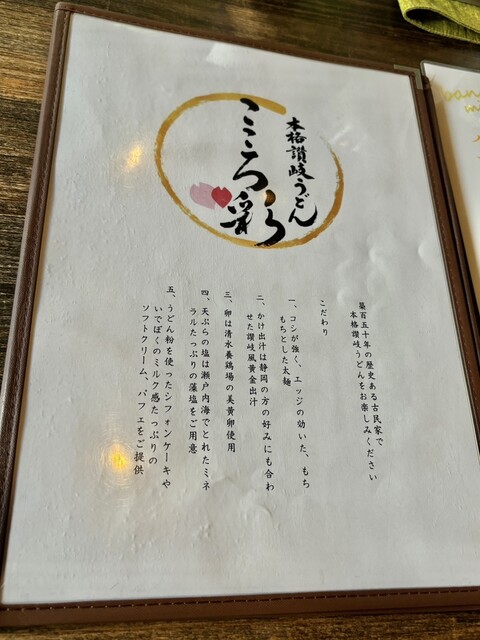 本格讃岐うどん
こころ彩
築百五十年の歴史ある古民家で
本格讃岐うどんをお楽しみください
こだわり
一、コシが強く、エッジの効いた、もち
もちとした太麺
二、かけ出汁は静岡の方の好みにも合わ
せた讃岐風黄金出汁
三、卵は清水養鶏場の美黄卵使用
四、天ぷらの塩は瀬戸内海でとれたミネ
ラルたっぷりの藻塩をご用意
五、うどん粉を使ったシフォンケーキや
いでぼくのミルク感たっぷりの
ソフトクリーム、パフェをご提供